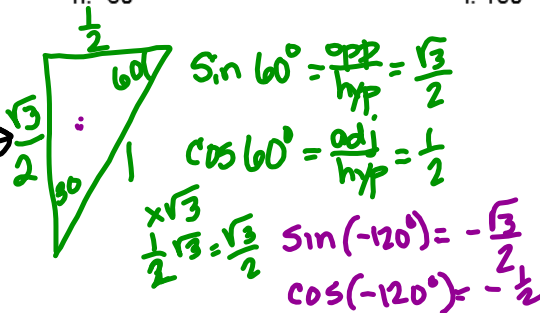 1/2
60°
sin 60° = opp/hyp = √3/2
√3/2
1
30
cos 60° = adj/hyp = 1/2
x√3
1/2 √3 = √3/2
sin(-120°) = -√3/2
cos(-120°) = -1/2